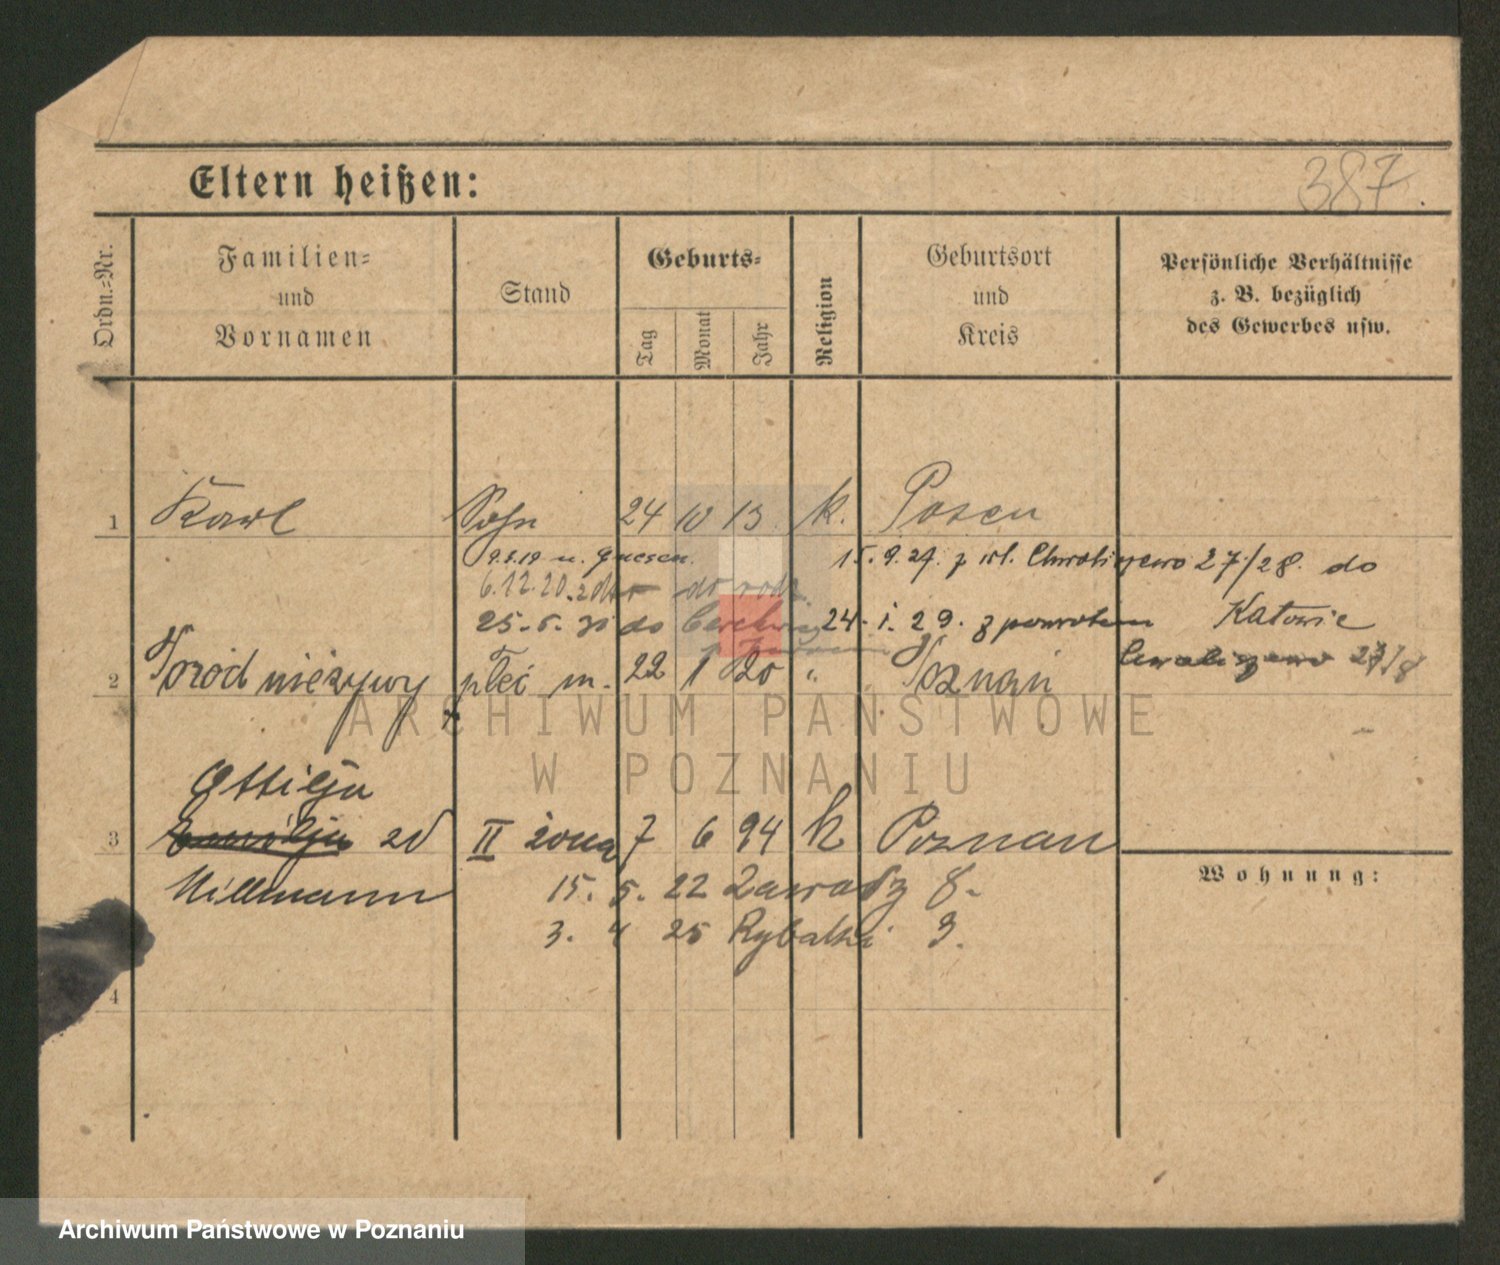 Eltern heißen:
387.
Ordn.-Nr.
Familien-
und
Vornamen
Stand
Geburts-
Tag
Monat
Jahr
Religion
Geburtsort
und
Kreis
Persönliche Verhältnisse
z. B. bezüglich
des Gewerbes usw.
1 Karl Sohn 24 10 13 k. Posen
9.8.19 n. Gnesen.
15.9.27. z ul. Chwaliszewo 27/28. do
Katowic
6.12.20. do rodz.
25.5.30 do
24.1.29. z powrotem
2 Poród nieżywy płci m. 22 1 20 " Poznań
Ottilja
3 zd II żona 7 6 94 k Poznań
Hillmann
15. 5. 22 Zawady 8.
3. 4 25 Rybaki 9.
4
Wohnung:
ARCHIWUM PAŃSTWOWE
W POZNANIU
Archiwum Państwowe w Poznaniu